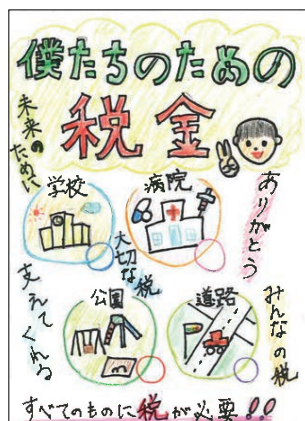 僕たちのための
税金
未来の
ために
学校
病院
ありがとう
大切な税
支えてくれる
公園
道路
みんなの税
すべてのものに税が必要!!